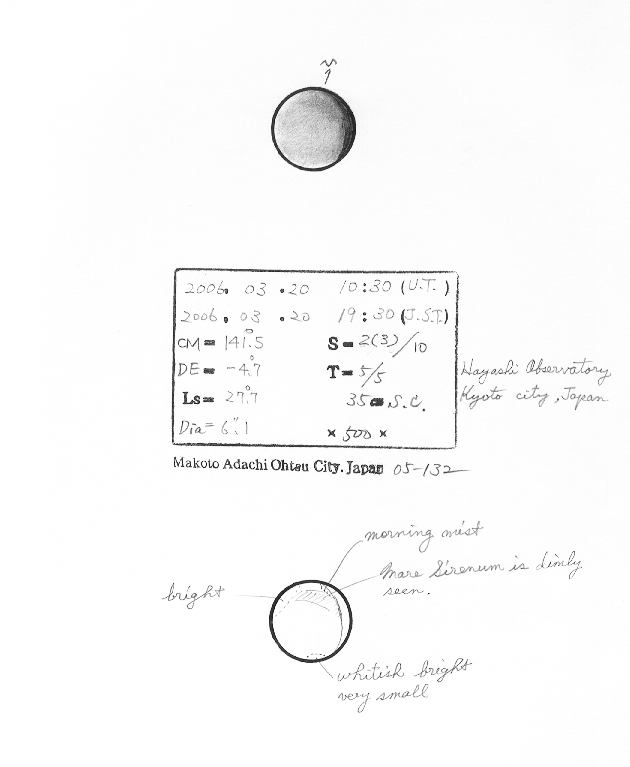 2006. 03 .20 10:30 (U.T.)
2006. 03 .20 19:30 (J.S.T)
CM = 141.°5 S = 2(3)/10
DE = -4.°7 T = 5/5
Ls = 27.°7 35 cm S.C.
Dia = 6".1 × 500 ×
Hayashi Observatory
Kyoto city, Japan
Makoto Adachi Ohtsu City. Japan 05-132
morning mist
Mare Sirenum is dimly
seen.
bright
whitish bright
very small